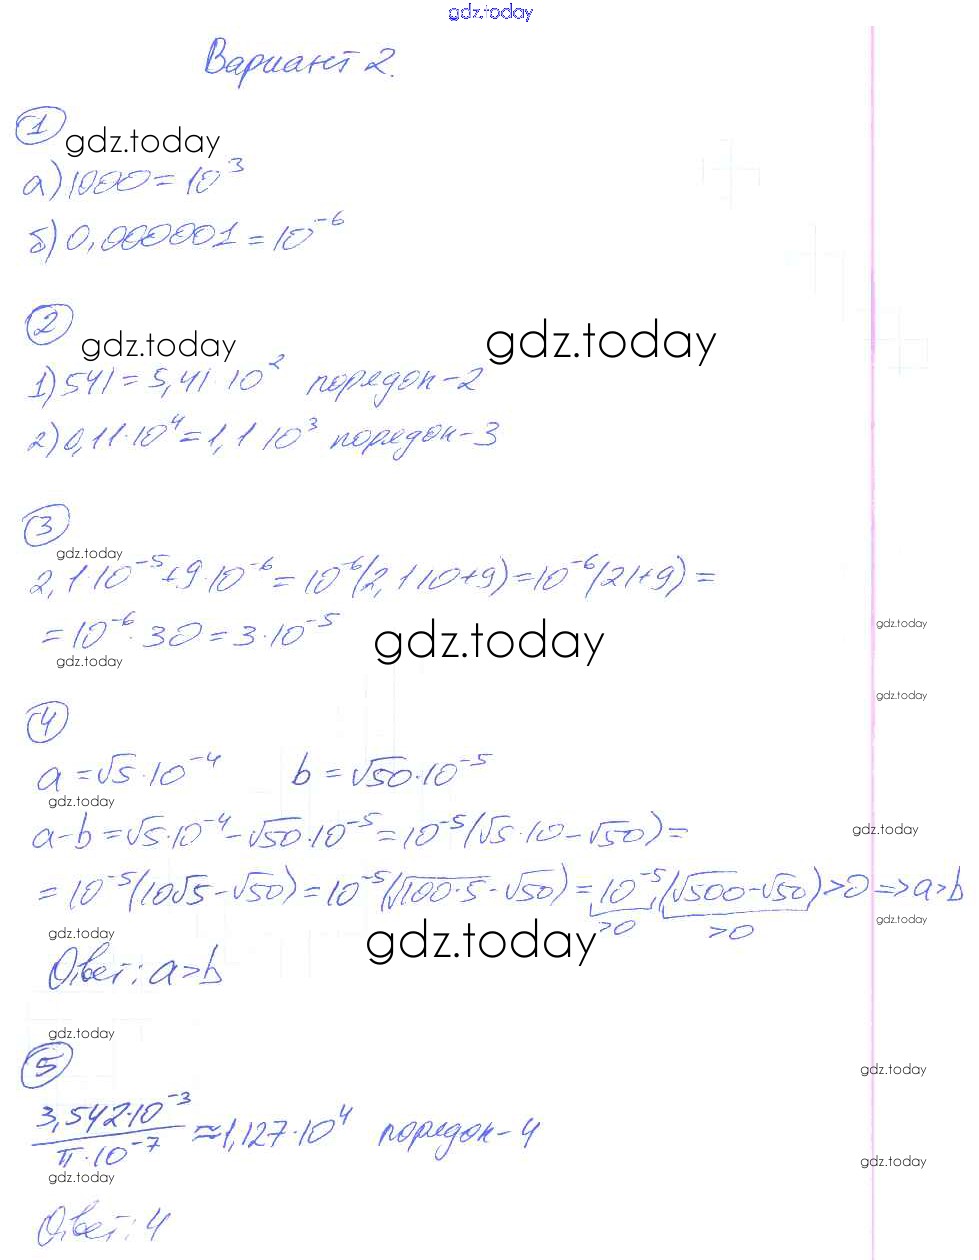 gdz.today
Вариант 2.
1
gdz.today
а) 1000 = 10^3
б) 0,000001 = 10^-6
2
gdz.today gdz.today
1) 541 = 5,41·10^2 порядок-2
2) 0,11·10^4 = 1,1·10^3 порядок-3
3
gdz.today
2,1·10^-5 + 9·10^-6 = 10^-6(2,1·10+9) = 10^-6(21+9) =
= 10^-6 · 30 = 3·10^-5
gdz.today
gdz.today
gdz.today
gdz.today
4
a = √5·10^-4 b = √50·10^-5
gdz.today
a-b = √5·10^-4 - √50·10^-5 = 10^-5(√5·10 - √50) =
gdz.today
= 10^-5(10√5 - √50) = 10^-5(√100·5 - √50) = 10^-5(√500 - √50) > 0 => a>b
>0 >0
gdz.today
gdz.today
gdz.today
Ответ: a>b
gdz.today
5
gdz.today
3,542·10^-3 / π·10^-7 ≈ 1,127·10^4 порядок-4
gdz.today
gdz.today
Ответ: 4